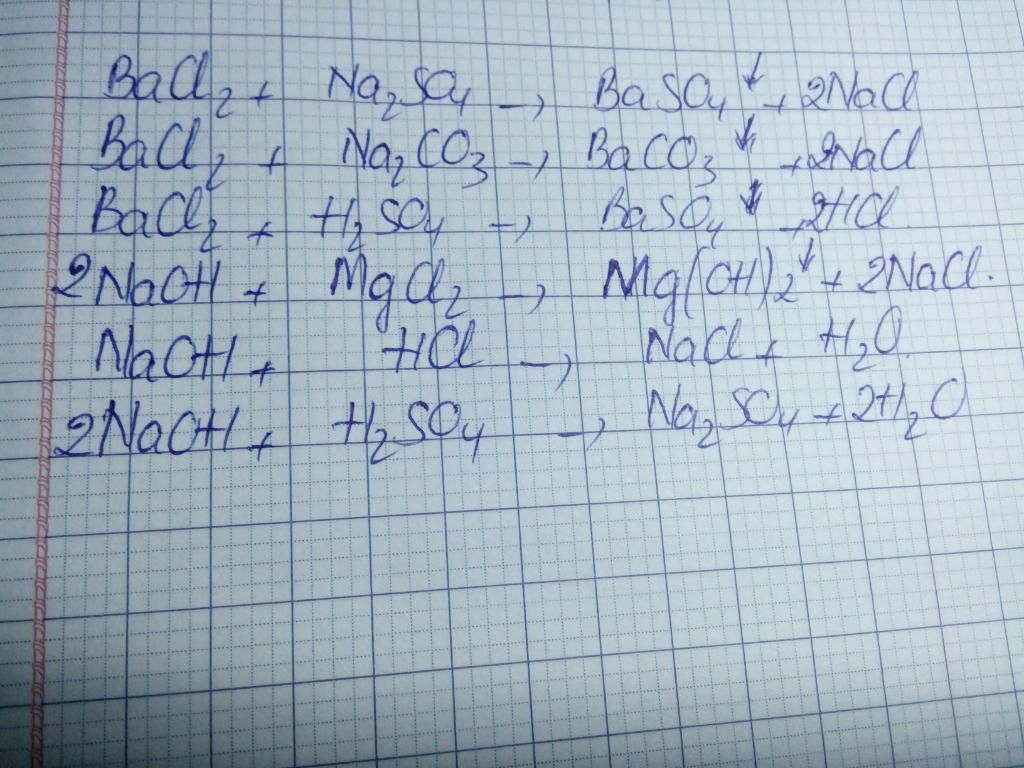 BaCl₂ + Na₂SO₄ → BaSO₄↓ + 2NaCl
BaCl₂ + Na₂CO₃ → BaCO₃↓ + 2NaCl
BaCl₂ + H₂SO₄ → BaSO₄↓ + 2HCl
2NaOH + MgCl₂ → Mg(OH)₂↓ + 2NaCl.
NaOH + HCl → NaCl + H₂O.
2NaOH + H₂SO₄ → Na₂SO₄ + 2H₂O